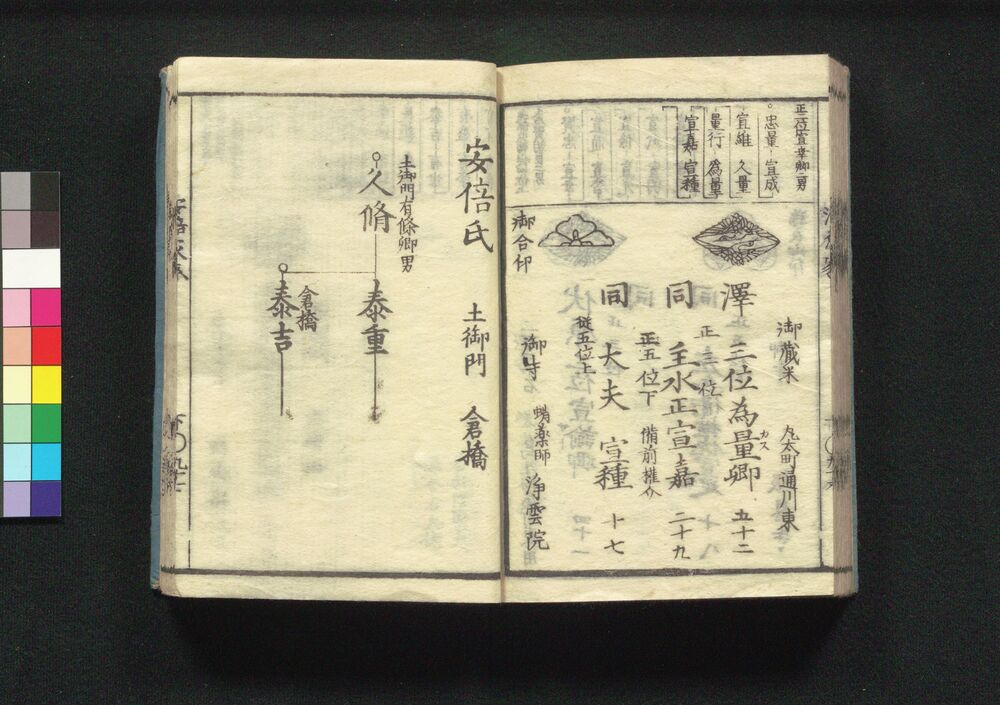 正三位宣幸卿二男
忠量 宣成
宣維 久量
量行 為量
宣嘉 宣種
御蔵米 丸太町通川東
澤 三位為量卿 五十二
カス
正三位
同 主水正宣嘉 二十九
正五位下 備前権介
同 大夫 宣種 十七
従五位上
御合印
御寺 蛸薬師 浄雲院
安倍氏 土御門 倉橋
土御門有脩卿男
久脩
泰重
倉橋
泰吉